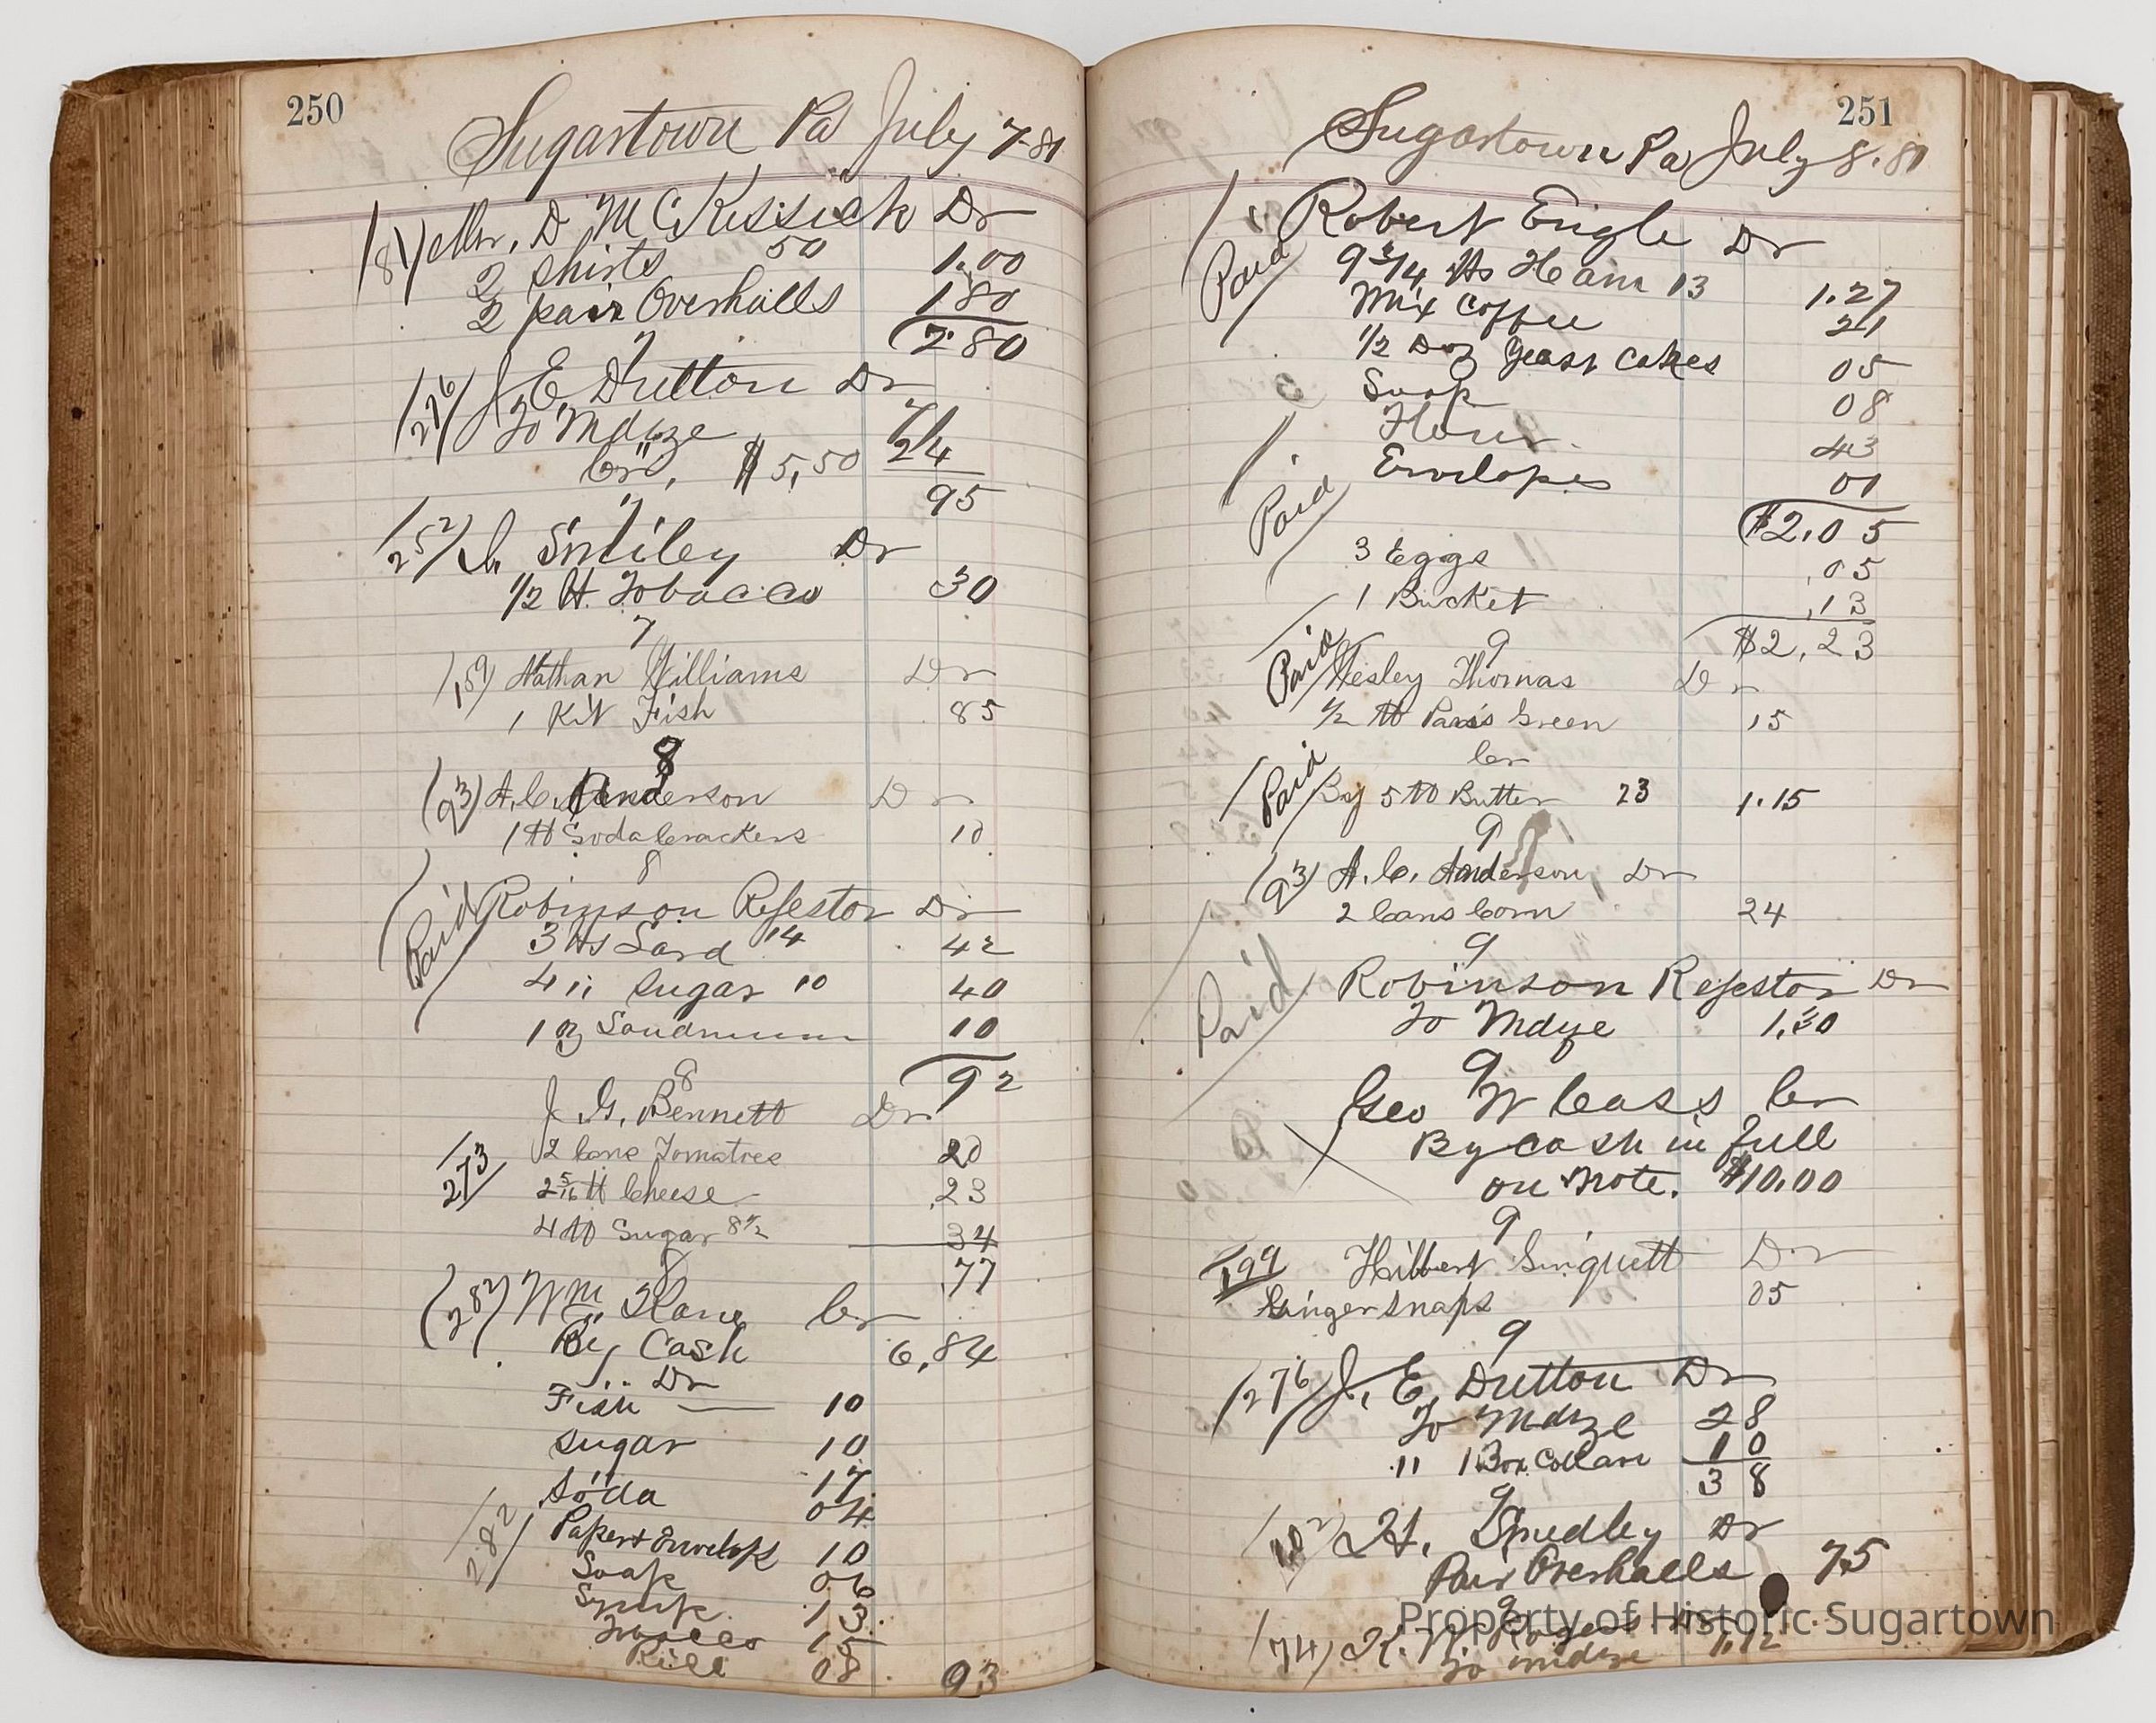 250
Sugartown Pa July 7-81
181) Mr. D McKissick Dr
2 shirts 50 1.00
2 pair Overhalls 1 80
2.80
7
276 J E Dutton Dr
To Mdze 71
Cr, $5,50 24
95
7
252 Smiley Dr
1/2 lb Tobacco 30
7
159 Nathan Williams Dr
1 Kit Fish 85
8
(93) A. C. Anderson Dr
1 lb Soda Crackers 10
8
Paid Robinson Refestor Dr
3 lbs Lard 14 42
4 " Sugar 10 40
1 oz 10
92
8
J. G. Bennett Dr
2 Cans Tomatoes 20
273 2 5/16 lb Cheese .23
4 lb Sugar 8 1/2 34
.77
8
(282) Wm Kane Cr
By Cash 6,84
Dr
Fish 10
Sugar 10
Soda 17
282 Paper & Envelops 04
Soap 10
Syrup 06
13
15
08 93
251
Sugartown Pa July 8.81
Robert Engle Dr
Paid 9 3/4 lbs Ham 13 1.27
Mix Coffee 21
1/2 Doz Yeast Cakes 05
Soap 08
Flour 43
Envelopes 01
Paid $2.05
3 Eggs .05
1 Bucket .13
$2,23
9
Paid Wesley Thomas Dr
1/2 lb Paris Green 15
Cr
Paid By 5 lb Butter 23 1.15
9
(93) A. C. Anderson Dr
2 Cans Corn 24
9
Paid Robinson Refestor Dr
To Mdze 1.30
9
Geo W Cass Cr
By cash in full
on Note. $10.00
9
199 Hibbert Dr
Ginger snaps 05
9
276 J. E. Dutton Dr
To Mdze 28
" 1 Box Collars 10
38
9
102 H. Smedley Dr
Pair Overhalls 75
9
74) Dr
To mdze 1.12
Property of Historic Sugartown